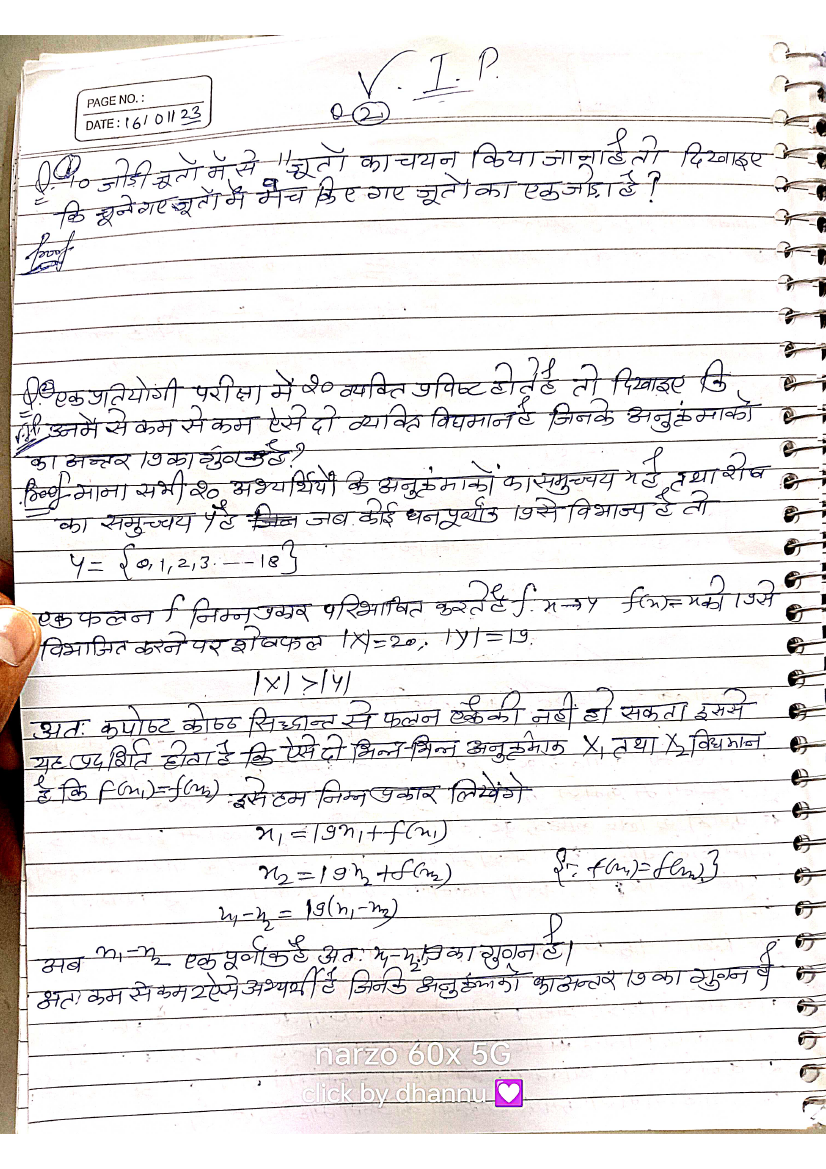 V. I. P.
PAGE NO. :
DATE : 16/01/23
Q (2)
Q.① 10 जोडी जूतों में से 11 जूतों का चयन किया जाता है तो दिखाइए
कि चूने गए जूतों में मेच किए गए जूतों का एक जोडा है?
Proof
Q.② एक प्रतियोगी परीक्षा में 20 व्यक्ति प्रविष्ट होते है तो दिखाइए कि
उनमें से कम से कम ऐसे दो व्यक्ति विद्यमान है जिनके अनुक्रंमाकों
का अन्तर 19 का गुणज है?
Proof माना सभी 20 अभ्यर्थियों के अनुक्रंमाकों का समुच्चय x है तथा शेष
का समुच्चय y है जब कोई धनपूर्णांक 19 से विभाज्य है तो
y = {0,1,2,3. --- 18}
एक फलन f निम्न प्रकार परिभाषित करते है f: x→y f(x) = x को 19 से
विभाजित करने पर शेषफल |X|=20, |Y|=19.
|X| >|Y|
अतः कपोष्ट कोष्ठ सिद्धान्त से फलन एकैकी नही हो सकता इससे
यह प्रदर्शित होता है कि ऐसे दो भिन्न भिन्न अनुक्रमांक X₁ तथा X₂ विद्यमान
है कि f(x₁)=f(x₂) इसे हम निम्न प्रकार लिखेंगे
x₁ = 19n₁ + f(x₁)
x₂ = 19n₂ + f(x₂) {∵ f(x₁) = f(x₂)}
x₁-x₂ = 19(n₁-n₂)
अब n₁-n₂ एक पूर्णांक है अतः x₁-x₂, 19 का गुणज है।
अतः कम से कम 2 ऐसे अभ्यर्थी है जिनके अनुक्रंमाकों का अन्तर 19 का गुणज है
narzo 60x 5G
click by dhannu